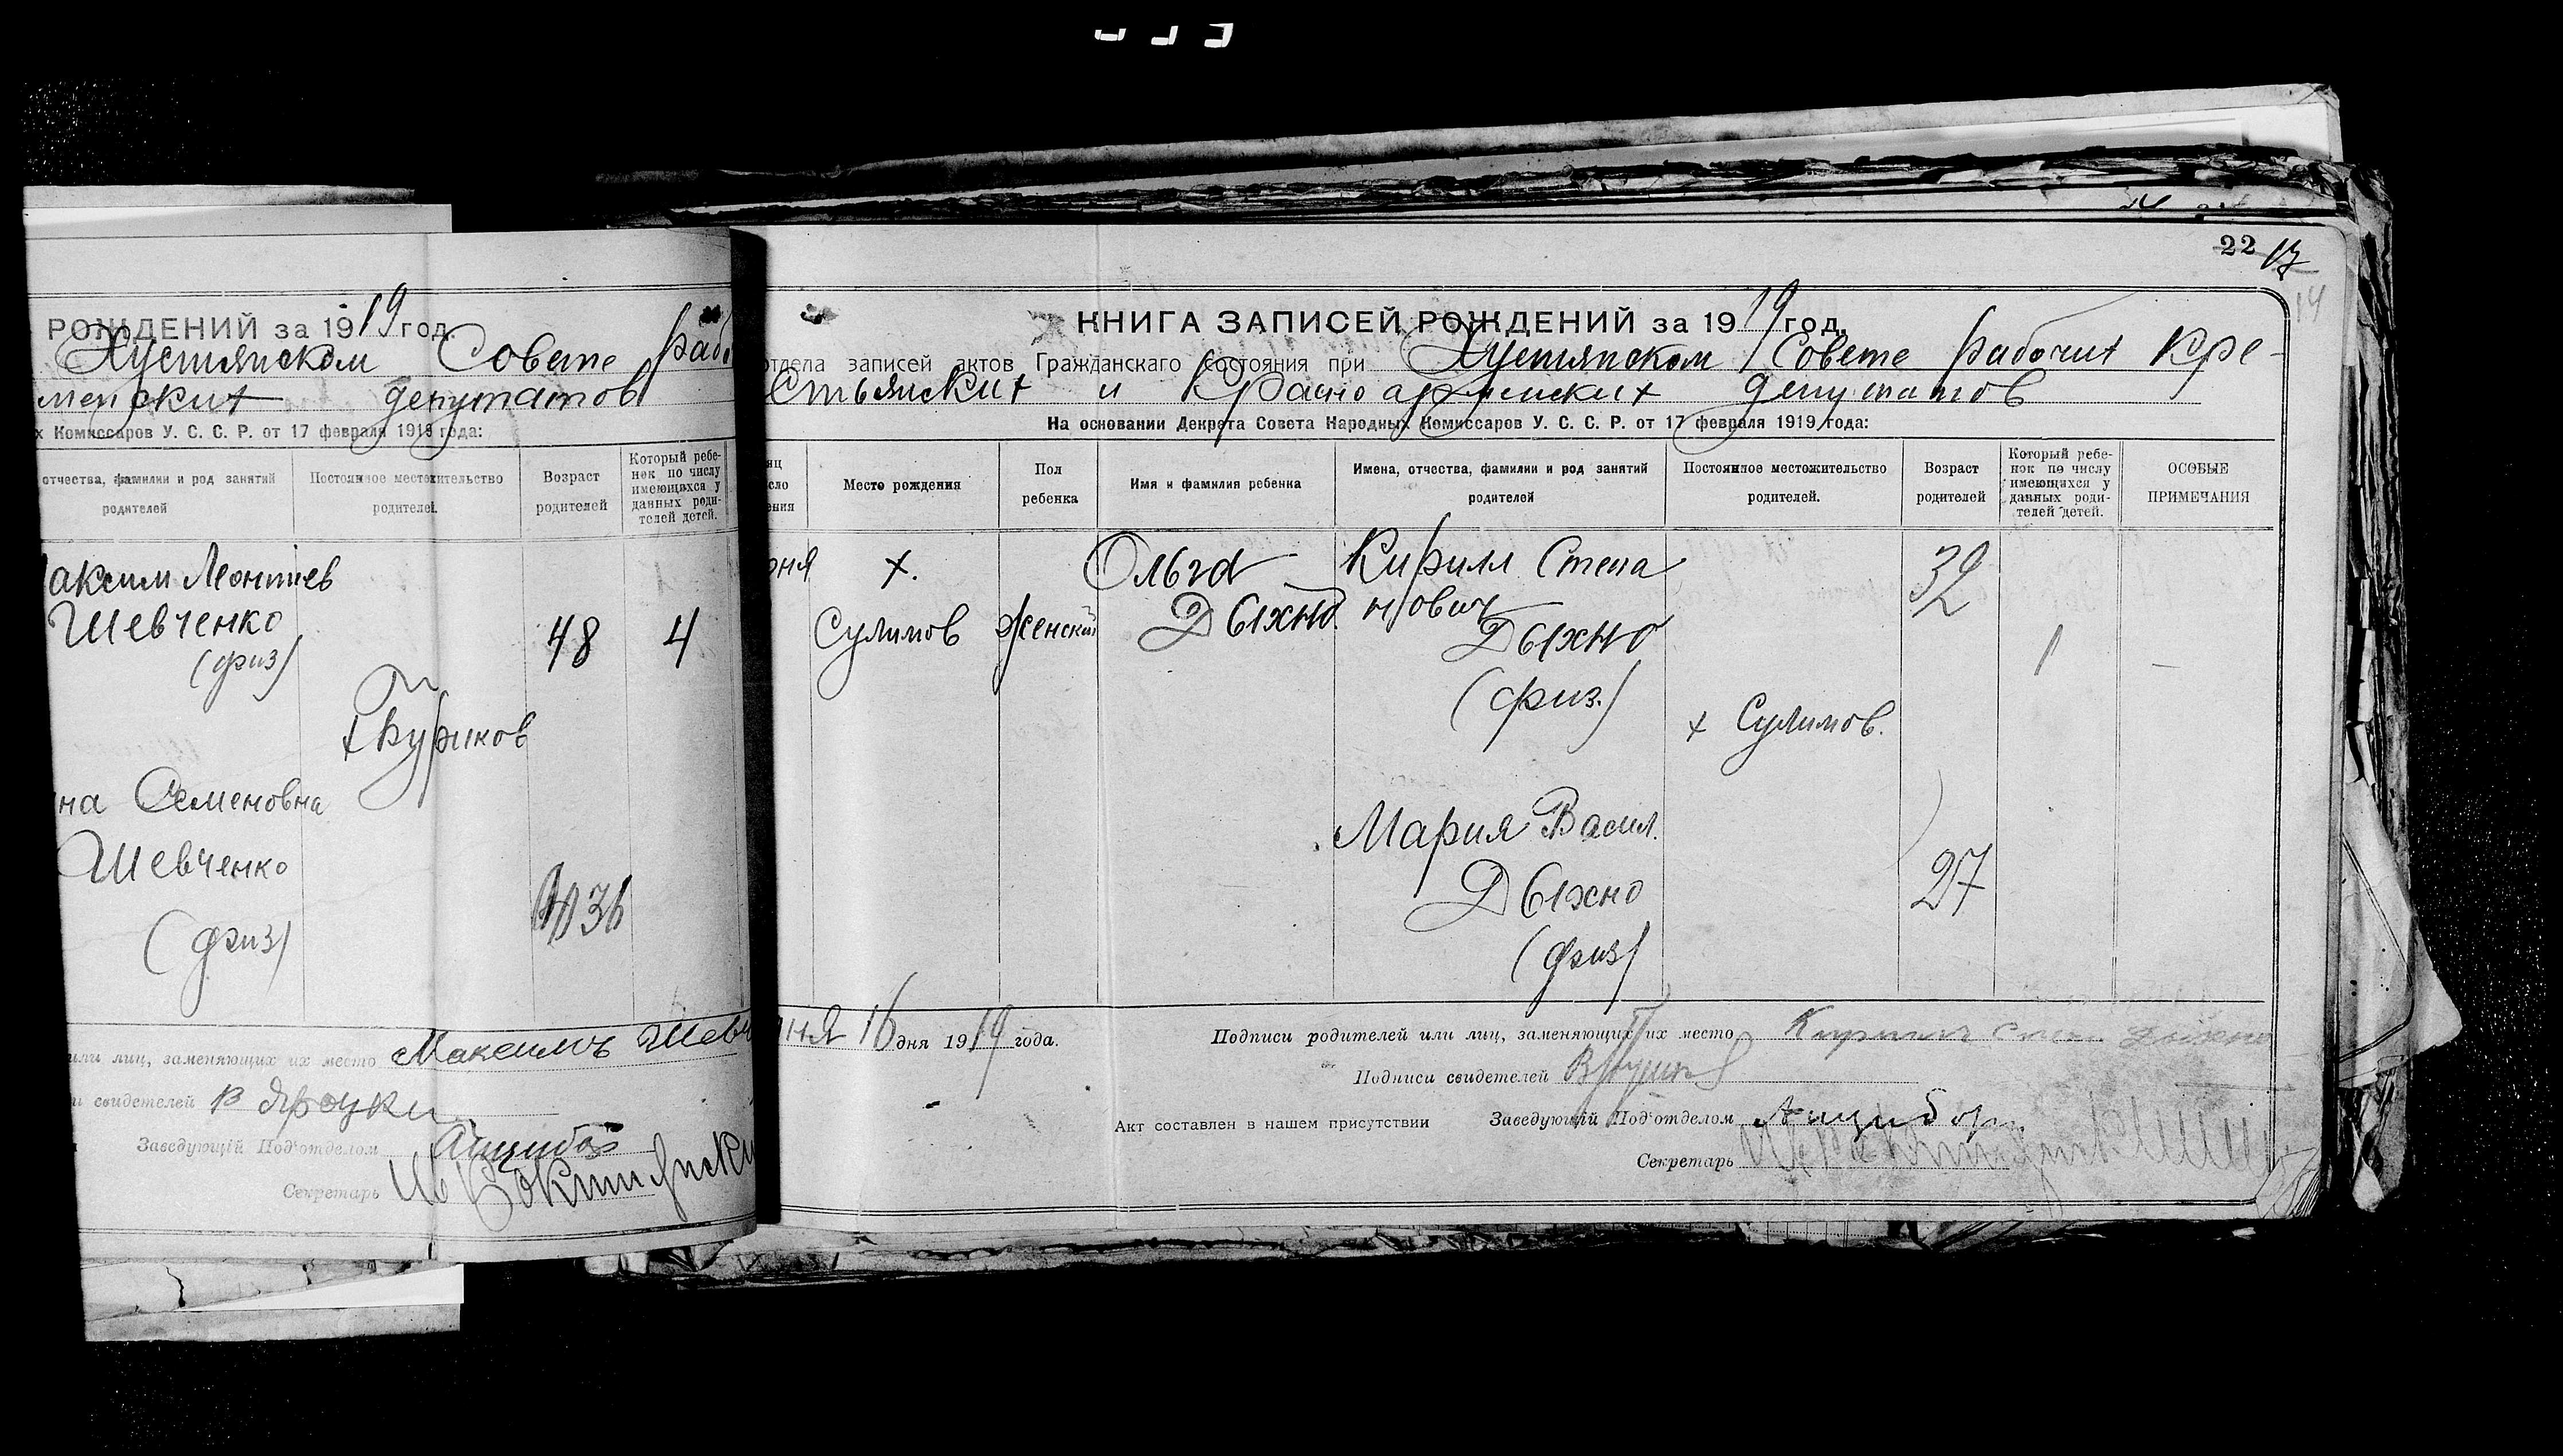 РОЖДЕНИЙ за 1919 год.
Хустянском Совете раб
депутатов
х Комиссаров У. С. С. Р. от 17 февраля 1919 года:
отчества, фамилии и род занятий
родителей
Постоянное местожительство
родителей.
Возраст
родителей
Который ребе-
нок по числу
имеющихся у
данных роди-
телей детей.
аксим Леонтиев
Шевченко
(физ)
48
4
на Семеновна
Шевченко
(физ)
36
или лиц, заменяющих их место Максимъ Шевч
и свидетелей
Заведующій Под'отделом
Секретарь
22 17
14
КНИГА ЗАПИСЕЙ РОЖДЕНИЙ за 1919 год.
отдела записей актов Гражданскаго состояния при Хустянском Совете рабочих Кре-
стьянских и Красно армейских депутатов
На основании Декрета Совета Народных Комиссаров У. С. С. Р. от 17 февраля 1919 года:
Место рождения
Пол
ребенка
Имя и фамилия ребенка
Имена, отчества, фамилии и род занятий
родителей
Постоянное местожительство
родителей.
Возраст
родителей
Который ребе-
нок по числу
имеющихся у
данных роди-
телей детей.
ОСОБЫЕ
ПРИМЕЧАНИЯ
юня
х.
Сулимов
женский
Ольга
Дыхно
Кирилл Степа
нович
Дыхно
(физ.)
х Сулимов.
32
1
–
Мария Васил.
Дыхно
(физ)
27
юня 16 дня 1919 года.
Подписи родителей или лиц, заменяющих их место Кирилл Степ. Дыхно
Подписи свидетелей
Акт составлен в нашем присутствии
Заведующій Под'отделом
Секретарь